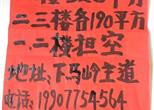 二三楼各190平方
一二楼担空
地址:下马岭主道
电话:19907754564